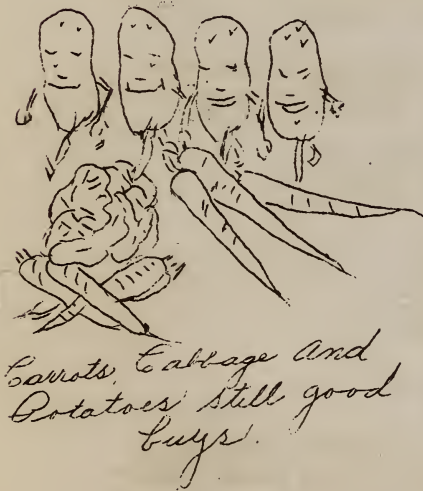 Carrots, Cabbage and
Potatoes still good
buys.